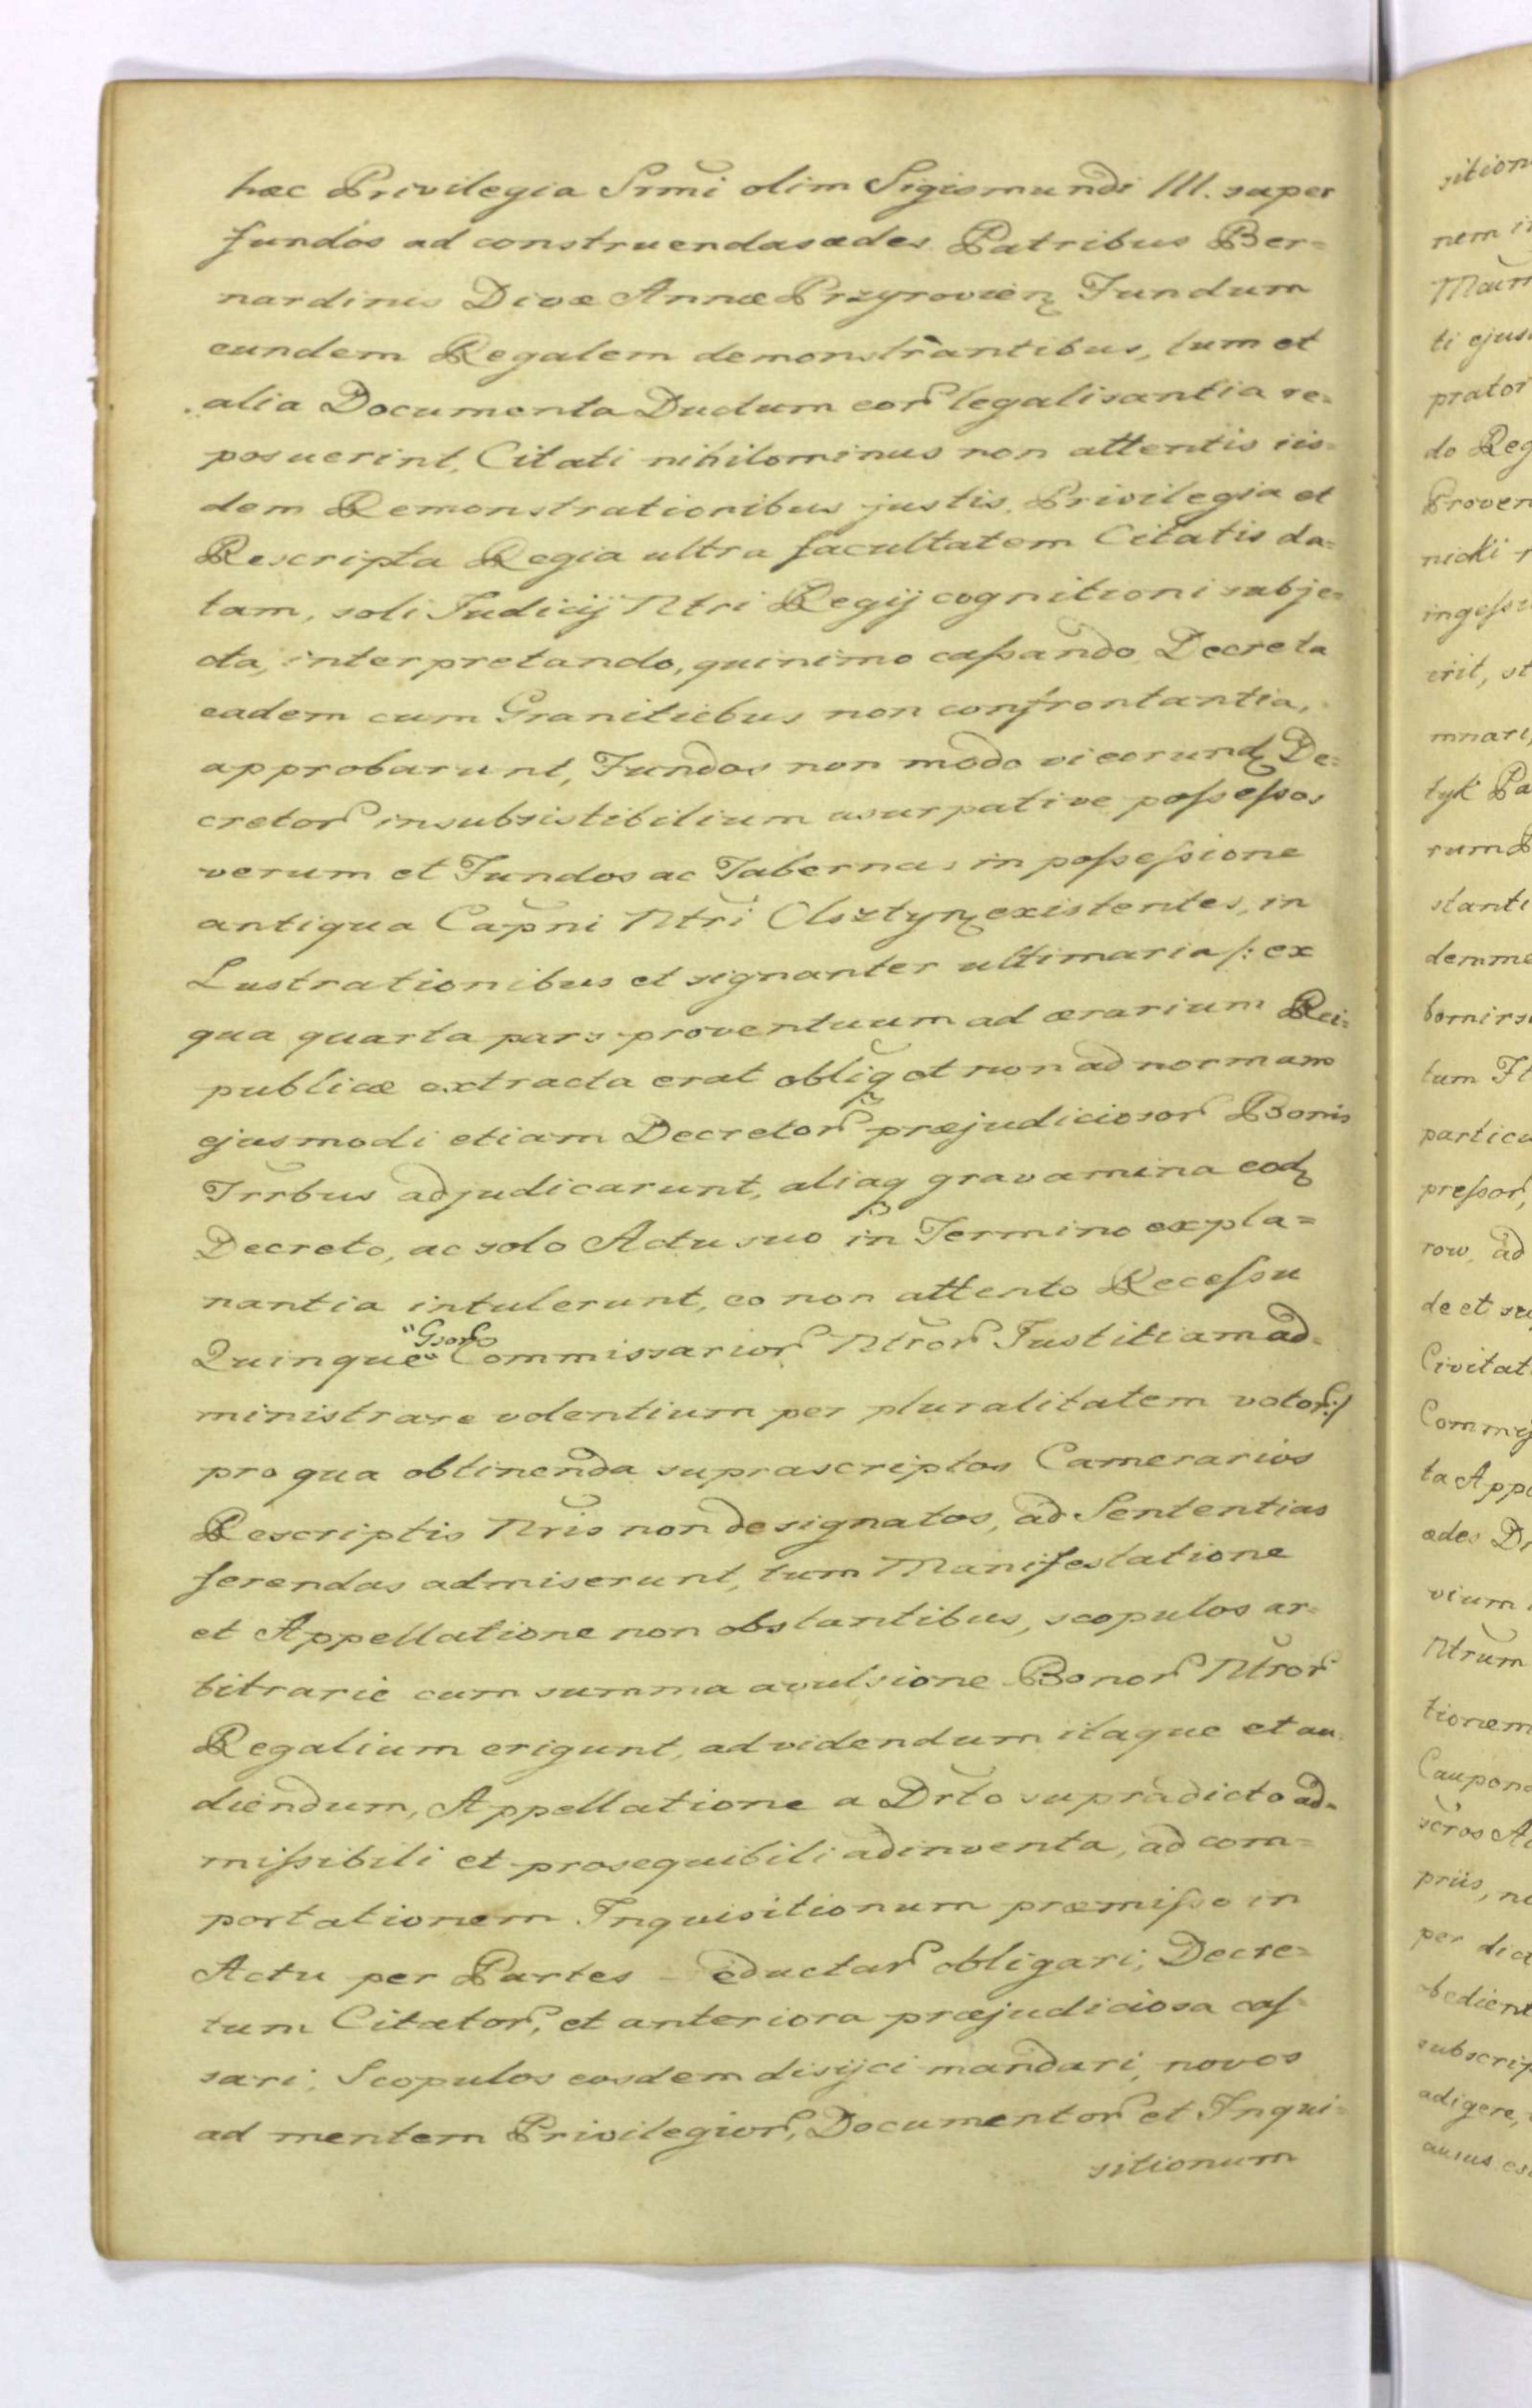 hæc Privilegia Srm̃i olim Sigismundi III. super
fundos ad construendas ædes Patribus Ber=
nardinis Divæ Annæ Przyrovien̄ Fundum
eundem Regalem demonstrantibus, tum et
alia Documenta Dudum eor̃ legalisantia re=
posuerint, Citati nihilominus non attentis iis=
dem Remonstrationibus justis, Privilegia et
Rescripta Regia ultra facultatem Citatis da=
tam, soli Judicij Ntri Regij cognitioni subje=
cta, interpretando, quinimo caſsando Decreta
eadem cum Granitiebus non confrontantia,
approbarunt, Fundos non modo vi eorund De=
cretor̃ insubsistibilium usurpative poſseſsos
verum et Fundos ac Tabernas in poſseſsione
antiqua Capñi Ntr̃i Olsztyn̄ existentes, in
Lustrationibus et signanter ultimaria /: ex
qua quarta pars proventuum ad ærarium Rei=
publicæ extracta erat obliq̃ et non ad normam
ejusmodi etiam Decretor̃ præjudiciosor̃ Bonis
Trr̃bus adjudicarunt, aliaq gravamina eod
Decreto, ac solo Actu suo in Termino expla=
nantia intulerunt, eo non attento Receſsu
Quinque "Gsor̃ Commissarior̃ Ntror̃ Justitiam ad=
ministrare volentium per pluralitatem votor̃ :/
pro qua obtinenda suprascriptos Camerarios
Rescriptis Nr̃is non designatos, ad Sententias
ferendas admiserunt, tum Manifestatione
et Appellatione non obstantibus, scopulos ar=
bitrarie cum summa avulsione Bonor̃ Ntror̃
Regalium erigunt, ad videndum itaque et au=
diendum, Appellatione a Drt̃o supradicto ad=
miſsibili et prosequibili adinventa, ad com=
portationem Inquisitionum præmiſso in
Actu per Partes eductar̃ obligari; Decre=
tum Citator̃, et anteriora præjudiciosa caſ=
sari, Scopulos eosdem disijci mandari, novos
ad mentem Privilegior̃, Documentor̃ et Inqui=
sitionum